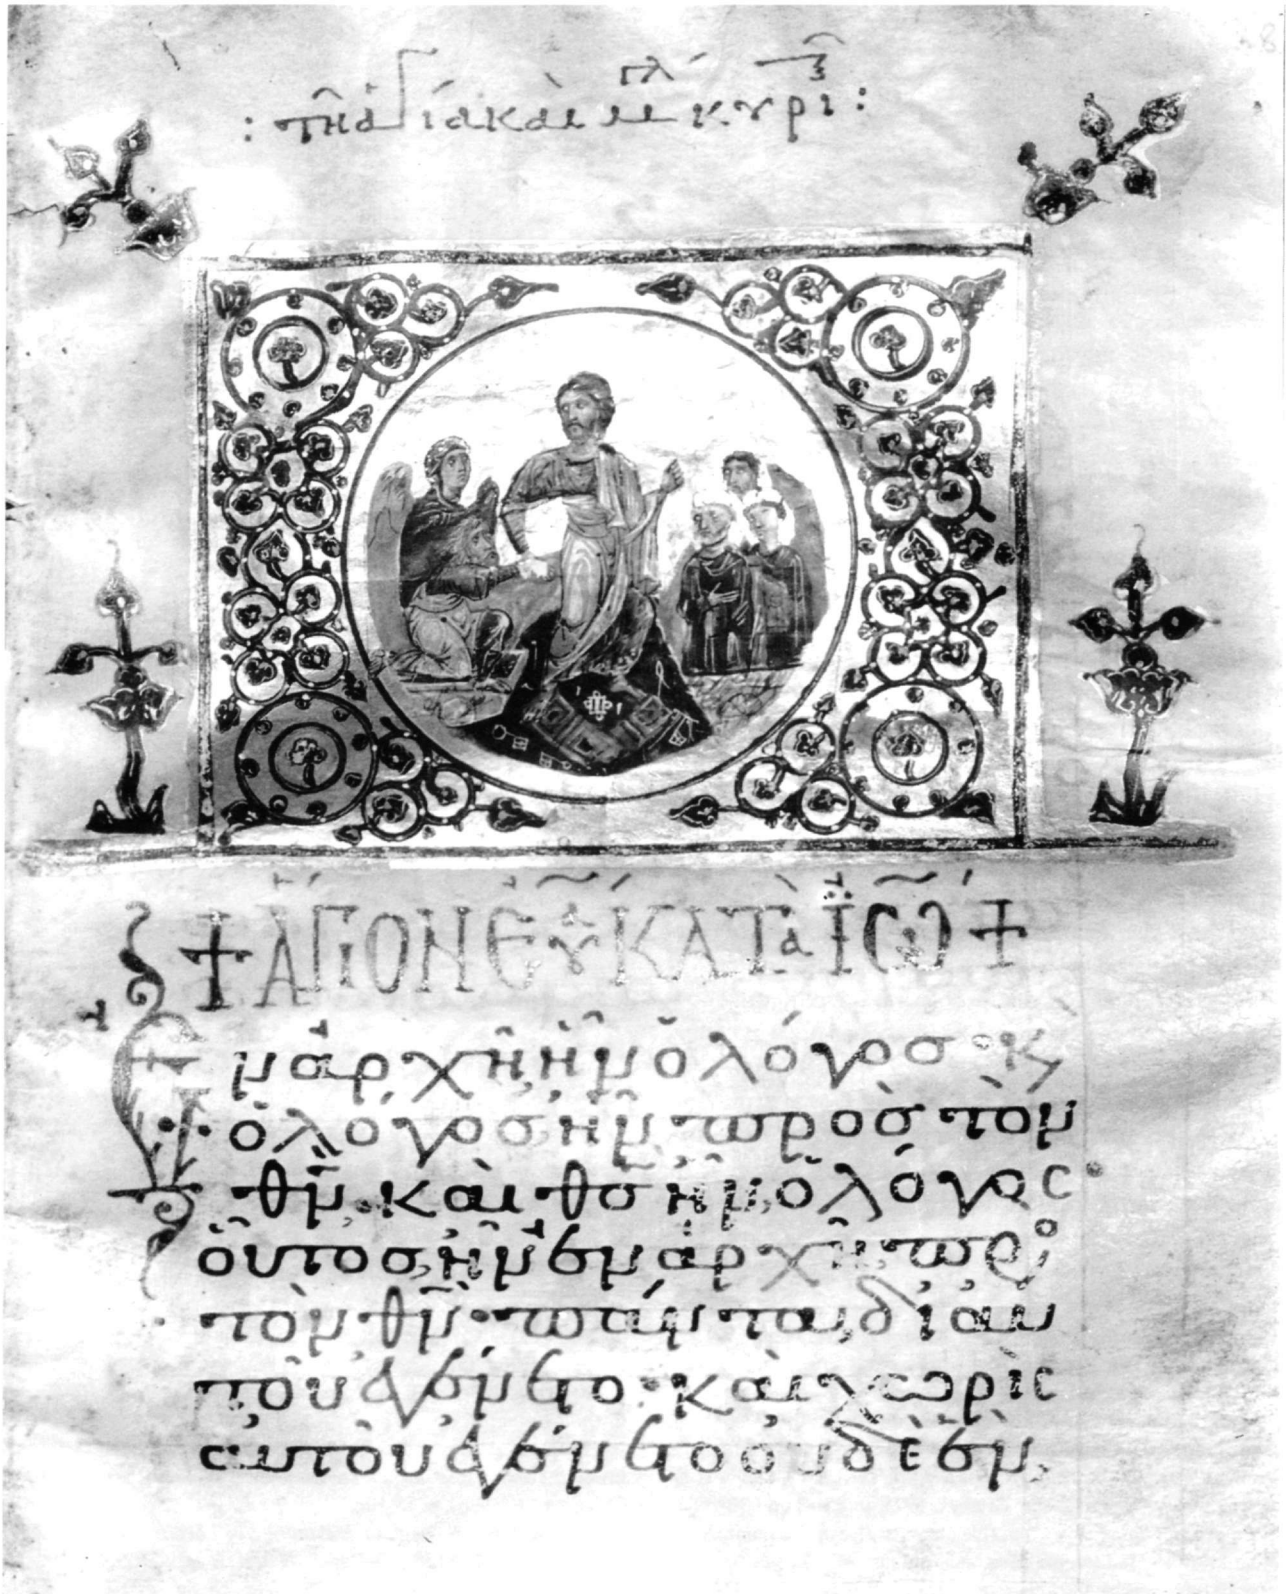 : τῆ ἁγία καὶ μ κυρι :
+ ἅγιον ευ κατὰ ἰω +
Ἐν ἀρχῆ ἦν ὁ λόγοσ · κ
ὁ λόγοσ ἦν πρὸσ τὸν
θν · καὶ θσ ἦν ὁ λόγος ·
οὗτοσ ἦν ἐν ἀρχῆ πρὸ
τὸν θν · πάντα δι αυ
τοῦ ἐγένετο · καὶ χωρὶς
αυτοῦ ἐγένετο οὐδὲ ἕν